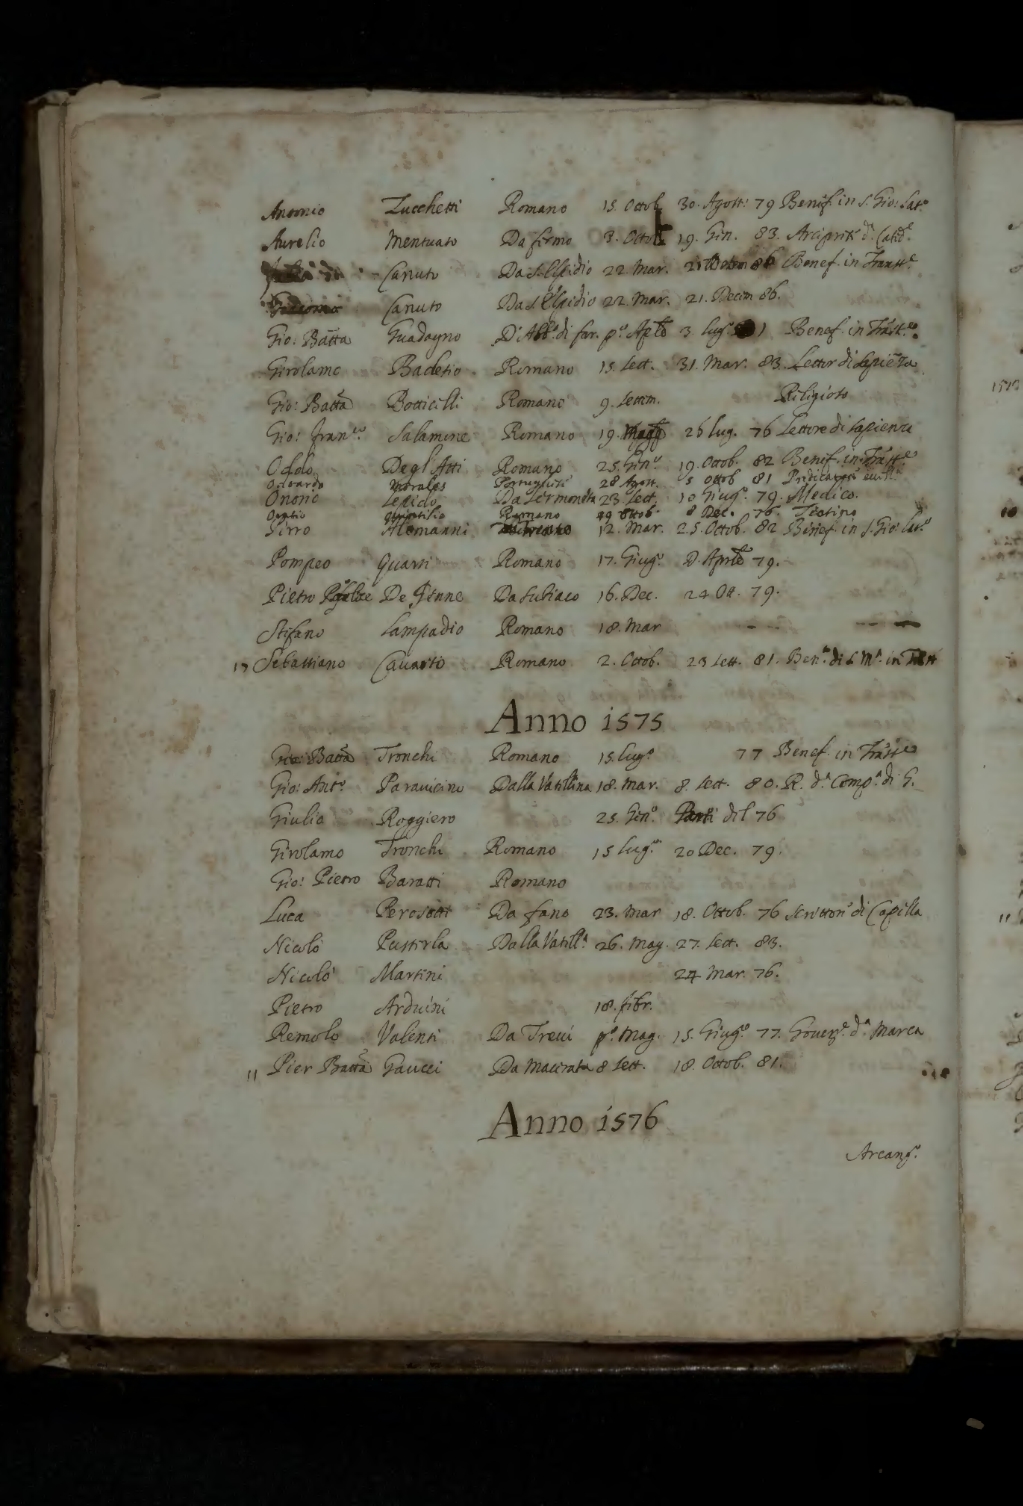 Antonio Zucchetti Romano 15. Ottob. 30. Agost: 79 Benef. in S. Gio: Lat.º
Aurelio Mentuato Da fermo 3. Ottob. 19. Gen. 83. Arciprit.
Canuto Da S. Elpidio 22 Mar. 86 Benef. in Trastt.e
Giacomo Canuto Da S. Elpidio 22. Mar. 21. Decem 86.
Gio: Batta Guadagno di far. p.º Aple 3 lug. Benef. in Trastt.e
Girolamo Romano 15 Sett. 31. Mar. 83. Lettor di Sapienza
Gio: Batta Botticelli Romano 9. Settem. Religioso
Gio: Fran.co Salamone Romano 19. 26 lug. 76 Lettore di Sapienza
Oddo Degl'Atti Romano 25. Gen.º 19. Ottob. 82 Benef. in Trastt.e
Odoardo Portughese 28 Agost. 5 Ottob 81
Onorio Lepido Da Sermoneta 23. Sett. 10 Giug.º 79. Medico.
Oratio Quintilio Romano 29 Ottob. 8 Dec. 76. Teatino
Pirro Alemanni 12. Mar. 25. Ottob. 82 Benef. in S. Gio: Lat.º
Pompeo Quarti Romano 17. Giug.º 8 Aprle 79.
Pietro De Jenne Da Subiaco 16. Dec. 24 79.
Stefano Lampadio Romano 18. Mar
17 Sebastiano Romano 2. Ottob. 23 Sett. 81. Ben.º di S. M.ª in
Anno 1575
Gio: Batta Tronchi Romano 15. lug.º 77 Benef. in Trastt.e
Gio: Ant.º Paravicino Dalla Valtellina 18. Mar. 8 Sett. 80. R. d.ª Comp.ª di G.
Giulio Roggiero 25. Gen.º Partì del 76
Girolamo Tronchi Romano 15 lug.º 20 Dec. 79.
Gio: Pietro Baratti Romano
Luca Da fano 23. Mar 18. Ottob. 76 Scrittor di Capella
Nicolò Pusterla Dalla Valtell.ª 26. Mag. 27. Sett. 83.
Nicolò Martini 24 Mar. 76.
Pietro Arduini 18. febr.
Remolo Valenti Da Trevi p.º Mag. 15. Giug.º 77. Gover.e d.ª Marca
11 Pier Batta Gaucci Da Macerata 8 Sett. 18 Ottob. 81.
Anno 1576
Arcang.º